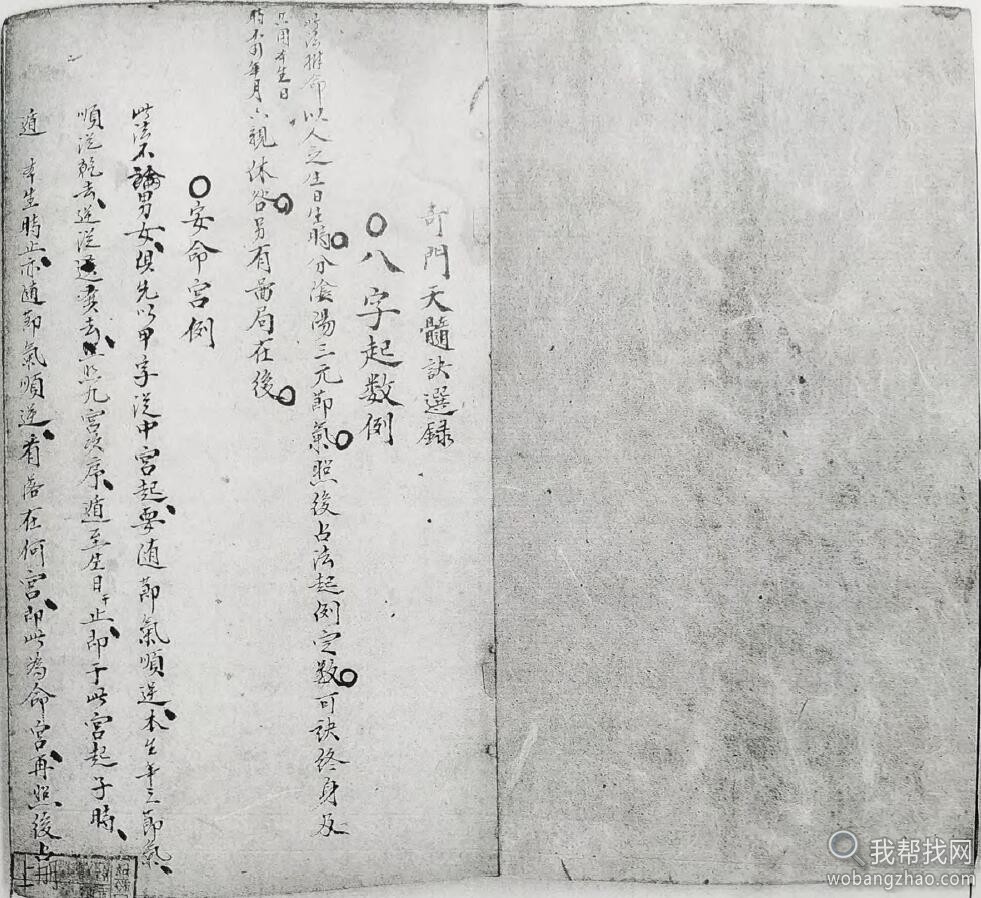 奇門天髓訣選録
八字起数例
此法推命以人之生日生時分陰陽三元節氣照後占法起例定数可訣終身及
只用本生日
時不用年月
六親休咎另有啚局在後
安命宫例
此法不論男女俱先以甲字從中宫起要随節氣順逆本生年之節氣
順從乾去逆從巽去照九宫次序遁至生日干止即于此宫起子時
遁本生時止亦随節氣順逆看落在何宫即此為命宫再照後占
上冊
我帮找网
wobangzhao.com